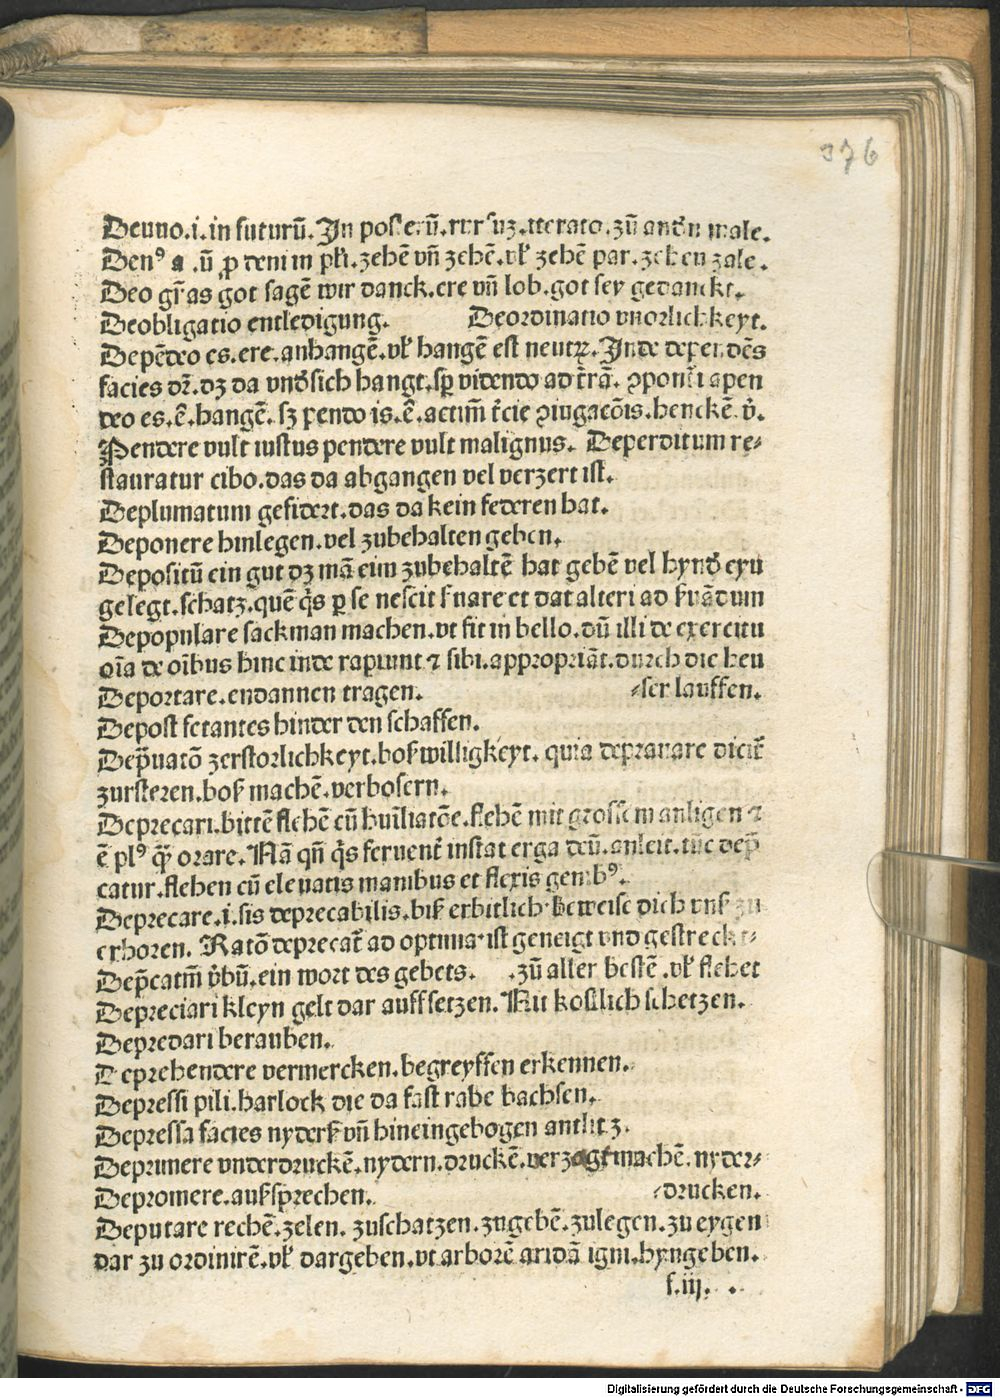 376
Deuno.i.in futurū.In poſterū.rurſuz.iterato.zū andn male.
Den⁹ a .ū ꝓ deni in plr̄i.zehē vn̄ zehē.vl̕ zehē par.zehen zale.
Deo gr̄as got ſagē wir danck.ere vn̄ lob.got ſey gedanckt.
Deobligatio entledigung. Deordinatio vnorlichkeyt.
Depēdeo es.ere.anhangē.vl̕ hangē eſt neutꝝ.Inde dependēs
facies dr̄.dz da vnd̕ſich hangt.ſꝑ vidento ad t̄rā. ꝓponit̄ apen
deo es.ē.hangē.ſz pendo is.ē.actiuū t̄cie ꝯiugacōis.henckē.v̄.
Pendere vult iuſtus pendere vult malignus. Deperditum re⸗
ſtauratur cibo.das da abgangen vel verzert iſt.
Deplumatum gefidert.das da kein federen hat.
Deponere hinlegen.vel zubehalten geben.
Depoſitū ein gut dz mā eim zubehaltē hat gebē vel hynd̕ eyn
gelegt.ſchatz.quē q̄s ꝑ ſe neſcit ſ̕uare et dat alteri ad ſ̕uādum
Depopulare ſackman machen.vt fit in bello.dū illi de exercitu
oīa de oībus hinc inde rapiunt ⁊ ſibi.appropriāt.durch die heu
Deportare.endannen tragen. ⸗ſer lauffen.
Depoſt fetantes hinder den ſchaffen.
Dep̄uatō zerſtorlichkeyt.boſ̕willigkeyt. quia deprauare dicit̄
zurſteren.boſ̕ machē.verboſern.
Deprecari.bittē flehē cū hūiliatōe.flehē mit groſſem anligen ⁊
ē pl⁹ q̄ꝫ orare.Nā qn̄ q̄s feruent̄ inſtat erga deū.anleit.tūc dep̄
catur.flehen cū eleuatis manibus et flexis genib⁹.
Deprecare.i.ſis deprecabilis.biſ̕ erbitlich.beweiſe dich vnſ̕ zu
erhoren. Ratō deprecat̄ ad optima.iſt geneigt vnd geſtreckt⸗
Dep̄catiū v̄bū.ein wort des gebets. .zū aller beſtē.vl̕ flehet
Depreciari kleyn gelt dar auff ſetzen.Nit koſtlich ſchetzen.
Depredari berauben.
Deprehendere vermercken.begreyffen erkennen.
Depreſſi pili.harlock die da faſt rabe hachſen.
Depreſſa facies nyderſ̕ vn̄ hineingebogen antlitz.
Deprimere vnderdruckē.nydern.druckē.verzagt machē.nyder⸗
Depromere.auſ̕ſprechen. ⸗drucken.
Deputare rechē.zelen. zuſchatzen.zugebē.zulegen.zu eygen
dar zu ordinirē.vl̕ dargeben.vt arborē aridā igni.hyngeben.
f.iij.
Digitalisierung gefördert durch die Deutsche Forschungsgemeinschaft - DFG